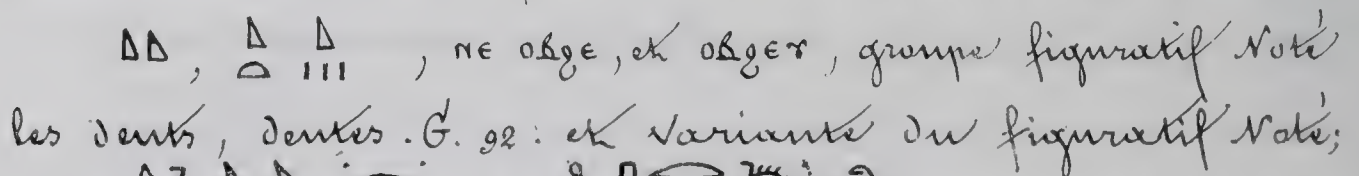 , ⲛⲉ ⲟⲃϩⲉ, et ⲟⲃϩⲉⲩ, groupe figuratif Noté
les dents, dentes. G. 92: et variante du figuratif Noté;